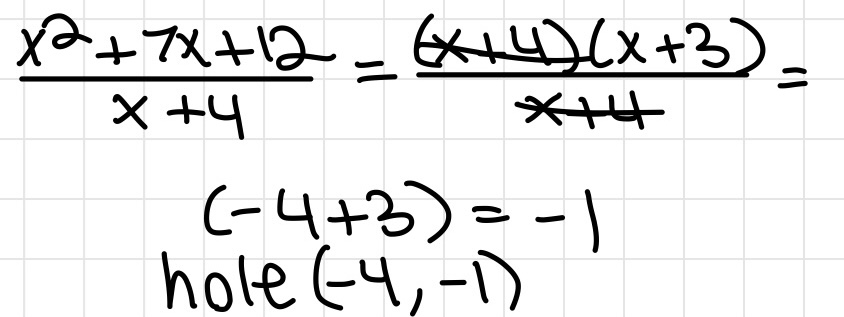 x²+7x+12/x+4 = (x+4)(x+3)/x+4 =
(-4+3) = -1
hole (-4,-1)